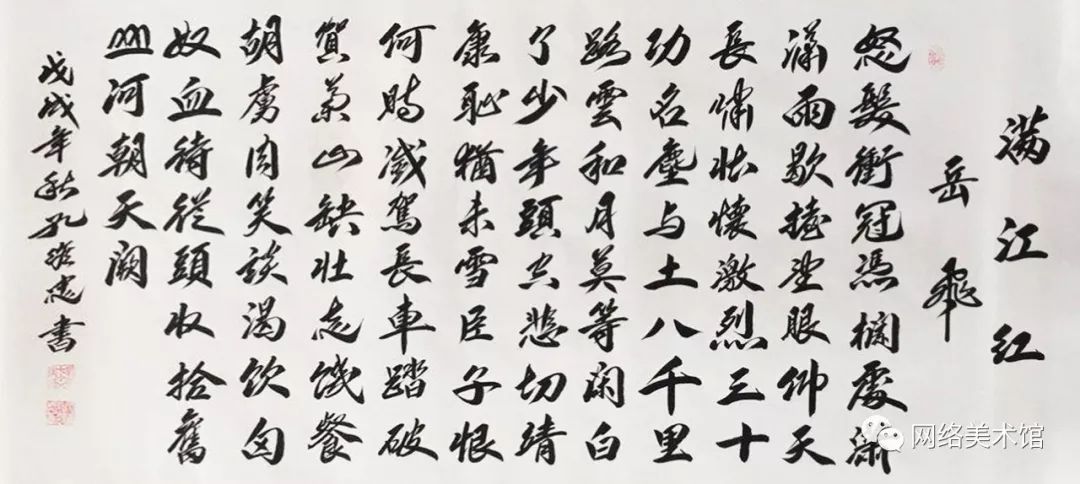 满江红
岳飛
怒髮衝冠憑欄處瀟
瀟雨歇擡望眼仰天
長嘯壯懷激烈三十
功名塵与土八千里
路雲和月莫等闲白
了少年頭空悲切靖
康恥猶未雪臣子恨
何時滅駕長車踏破
賀蘭山缺壯志饑餐
胡虜肉笑談渴飲匈
奴血待從頭收拾舊
山河朝天闕
戊戌年秋孔志書
网络美术馆